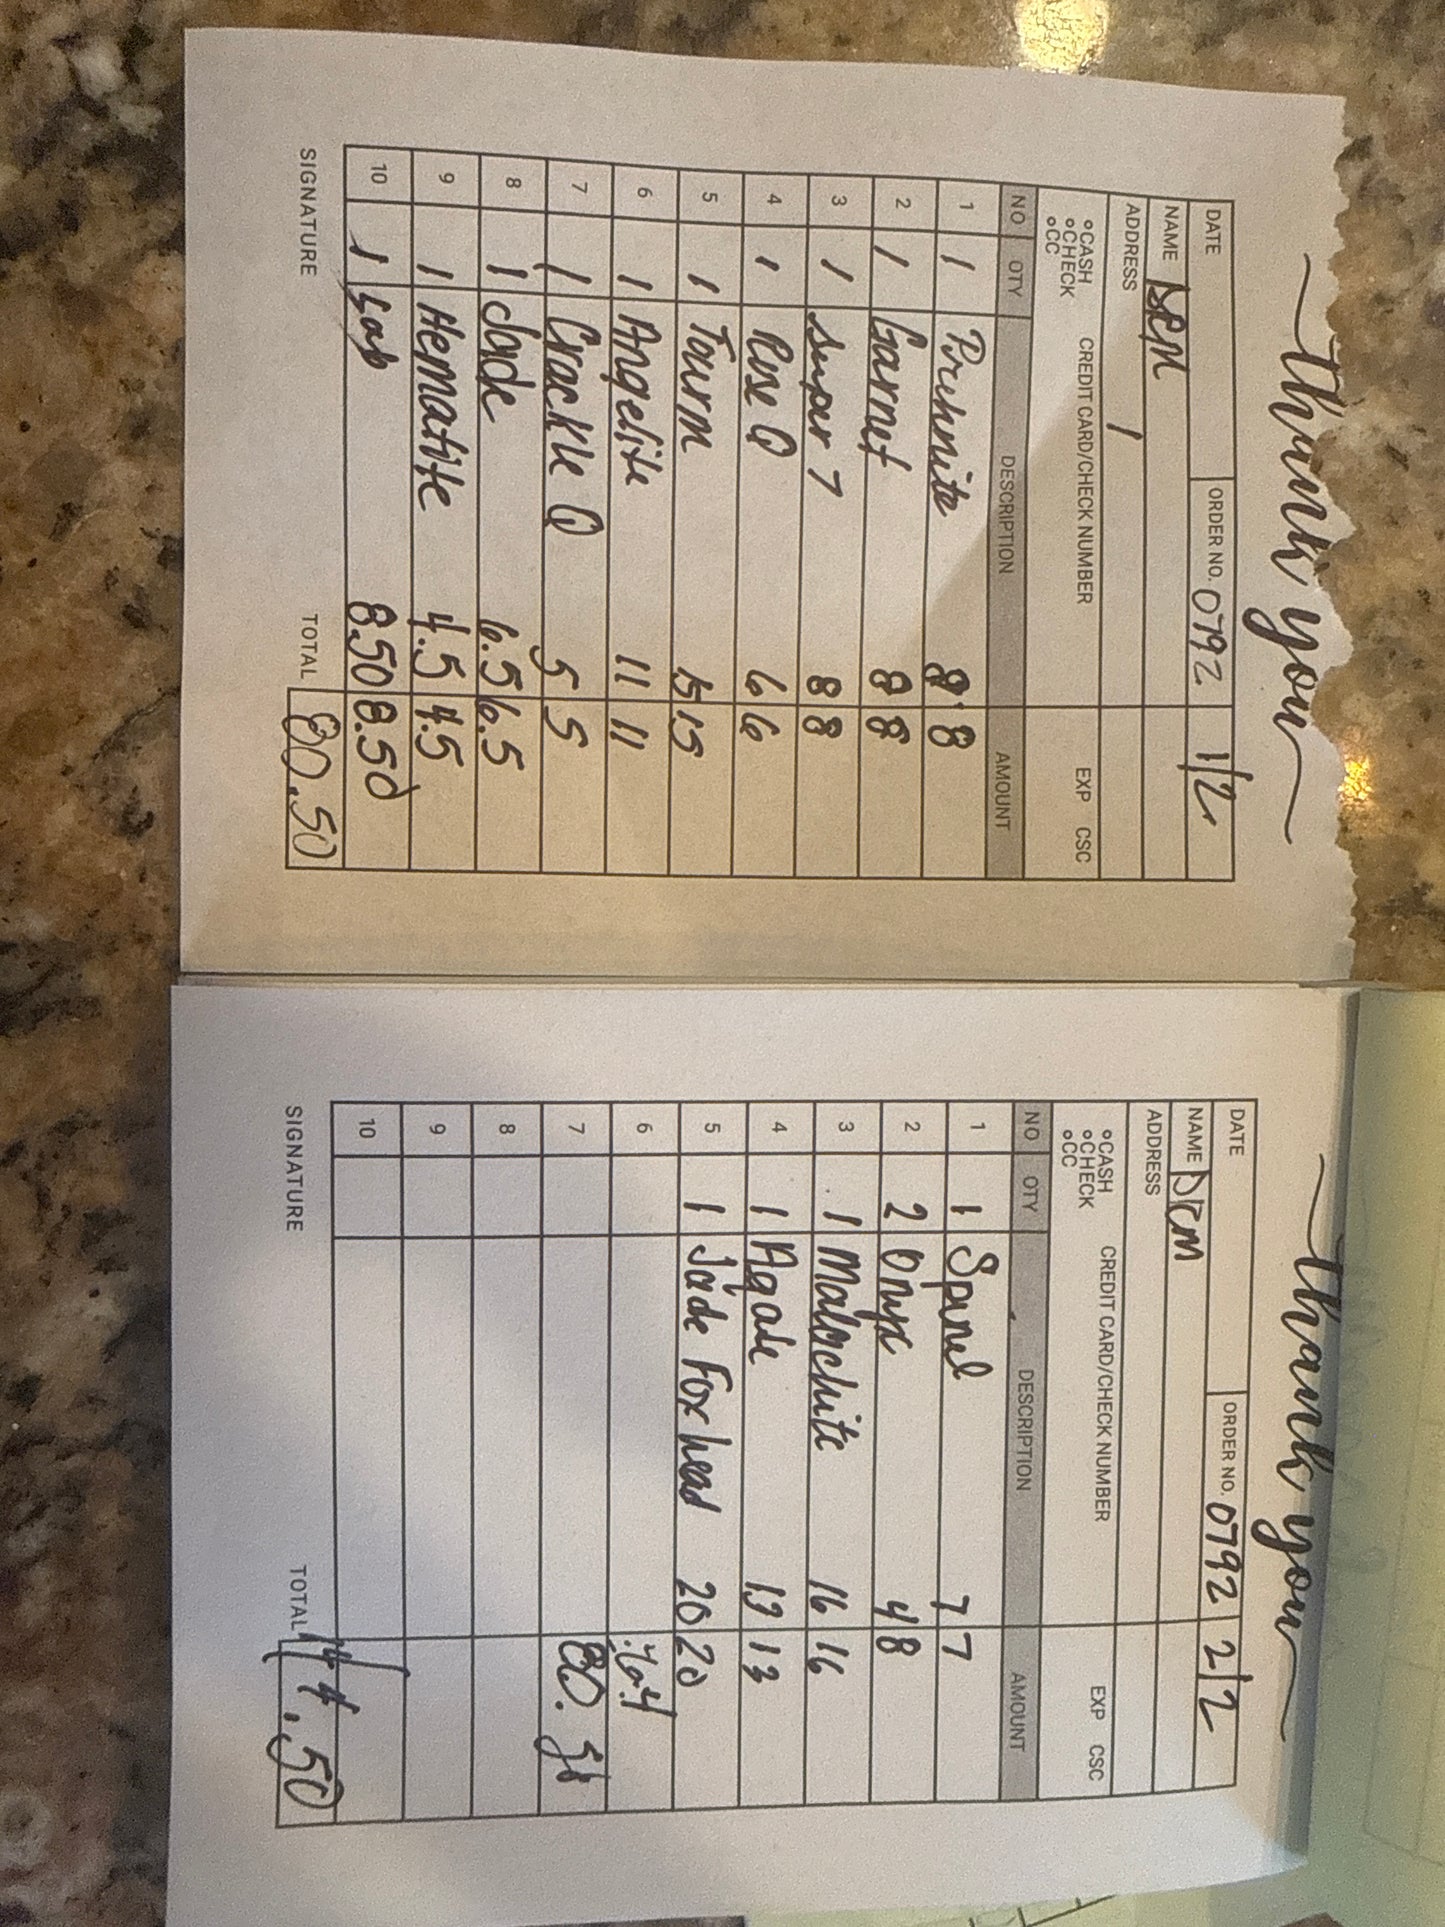 Thank you
DATE ORDER NO. 0792 1/2
NAME
ADDRESS
○CASH CREDIT CARD/CHECK NUMBER EXP CSC
○CHECK
○CC
NO QTY DESCRIPTION AMOUNT
1 1 Prehnite 8 8
2 1 Garnet 8 8
3 1 Super 7 8 8
4 1 Rose Q 6 6
5 1 Tourm 15 15
6 1 Angelite 11 11
7 1 Crackle Q 5 5
8 1 Jade 6.5 6.5
9 1 Hematite 4.5 4.5
10 1 8.50 8.50
SIGNATURE TOTAL 80.50
Thank you
DATE ORDER NO. 0792 2/2
NAME
ADDRESS
○CASH CREDIT CARD/CHECK NUMBER EXP CSC
○CHECK
○CC
NO QTY DESCRIPTION AMOUNT
1 1 Spinel 7 7
2 2 Onyx 4 8
3 1 Malachite 16 16
4 1 Agate 13 13
5 1 Jade Fox head 20 20
6
7
8
9
10
SIGNATURE TOTAL